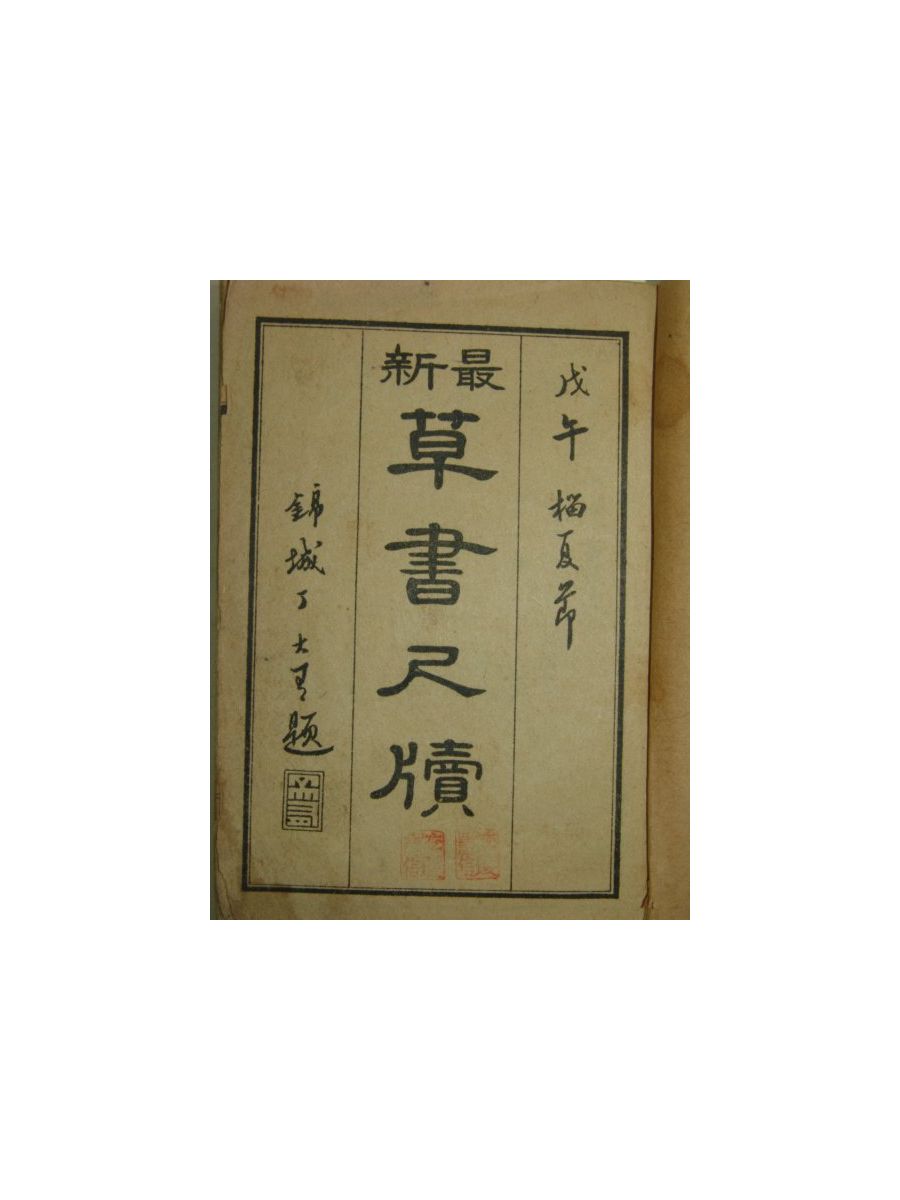 戊午榴夏節
最新
草書尺牘
錦城丁大有題